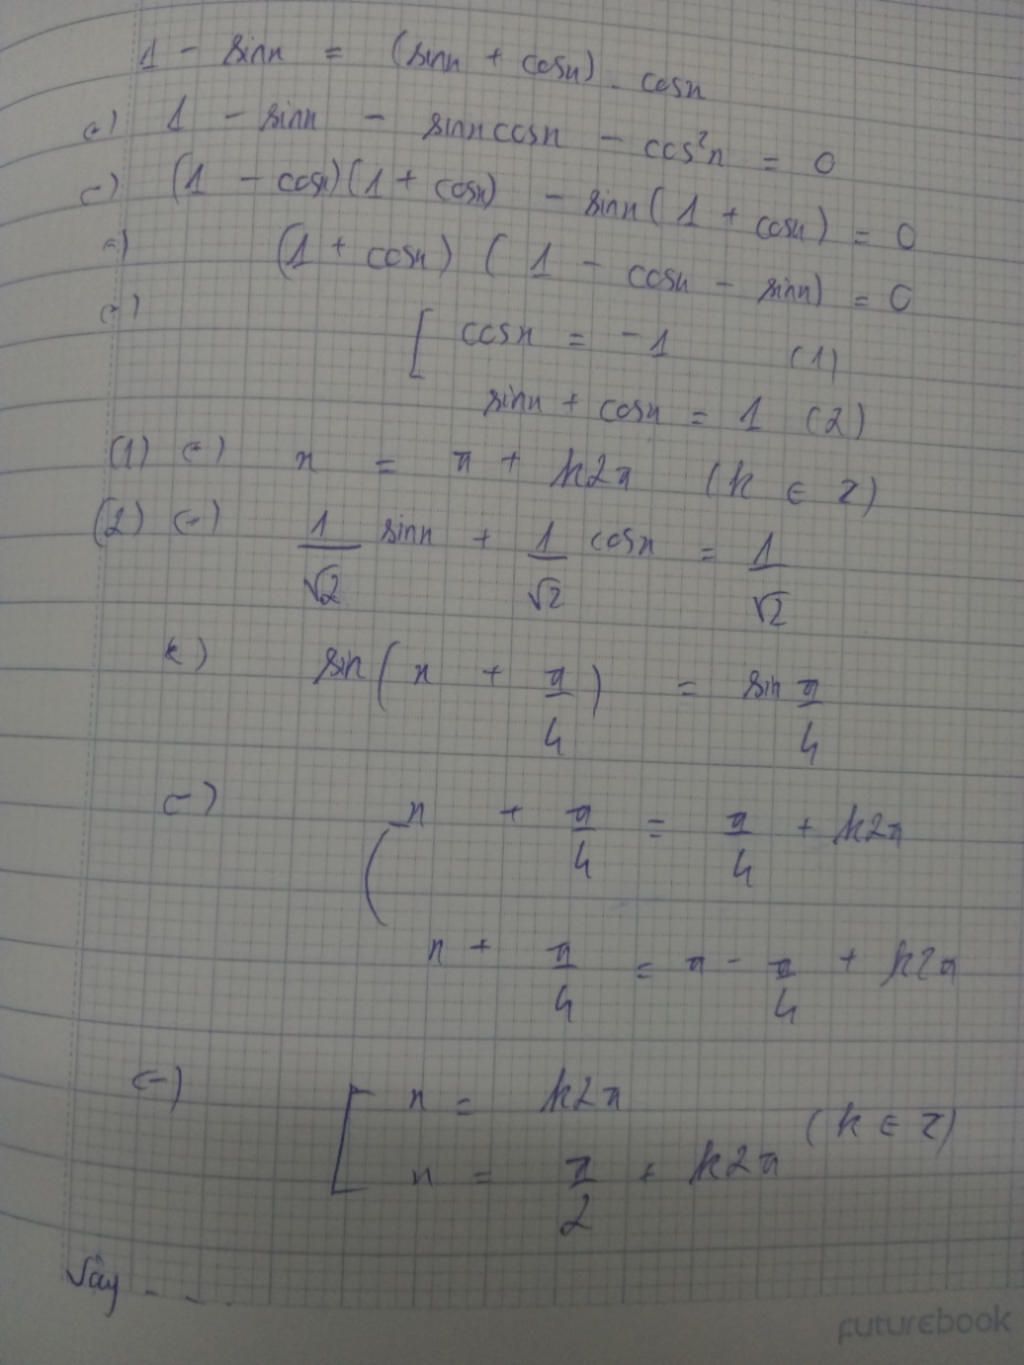 1 - sinx = (sinx + cosx) . cosx
<=> 1 - sinx - sinxcosx - cos²x = 0
<=> (1 - cosx)(1 + cosx) - sinx(1 + cosx) = 0
<=> (1 + cosx) (1 - cosx - sinx) = 0
<=> [ cosx = -1 (1)
sinx + cosx = 1 (2)
(1) <=> x = π + k2π (k ∈ Z)
(2) <=> 1/√2 sinx + 1/√2 cosx = 1/√2
<=> sin(x + π/4) = sin π/4
<=> [ x + π/4 = π/4 + k2π
x + π/4 = π - π/4 + k2π
<=> [ x = k2π
x = π/2 + k2π (k ∈ Z)
Vậy ....
futurebook